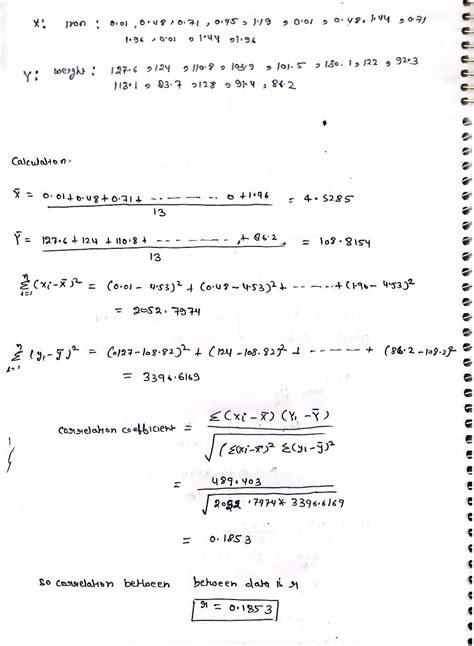 X: Iron : 0.01, 0.48, 0.71, 0.95, 1.19, 0.01, 0.48, 1.44, 0.71
1.96, 0.01, 1.44, 1.96
Y: weight : 127.6, 124, 110.8, 103.9, 101.5, 130.1, 122, 92.3
113.1, 83.7, 128, 91.4, 86.2
Calculation.
X̄ = 0.01+0.48+0.71+ - - - - - - 0+1.96 / 13 = 4.5285
Ȳ = 127.6+124+110.8+ - - - - - - ,+86.2 / 13 = 108.8154
Σⁿᵢ₌₁(xi-x̄)² = (0.01-4.53)² + (0.48-4.53)² + - - - - + (1.96-4.53)²
= 2052.7974
Σⁿᵢ₌₁(yi-ȳ)² = (0127-108.82)² + (124-108.82)² + - - - - - + (86.2-108.2)²
= 3396.6169
correlation coefficient = Σ(xi-x̄)(Yi-Ȳ) / √(Σ(xi-x̄)² Σ(yi-ȳ)²
= 489.403 / √2052.7974* 3396.6169
= 0.1853
So correlation between between data is r
r = 0.1853